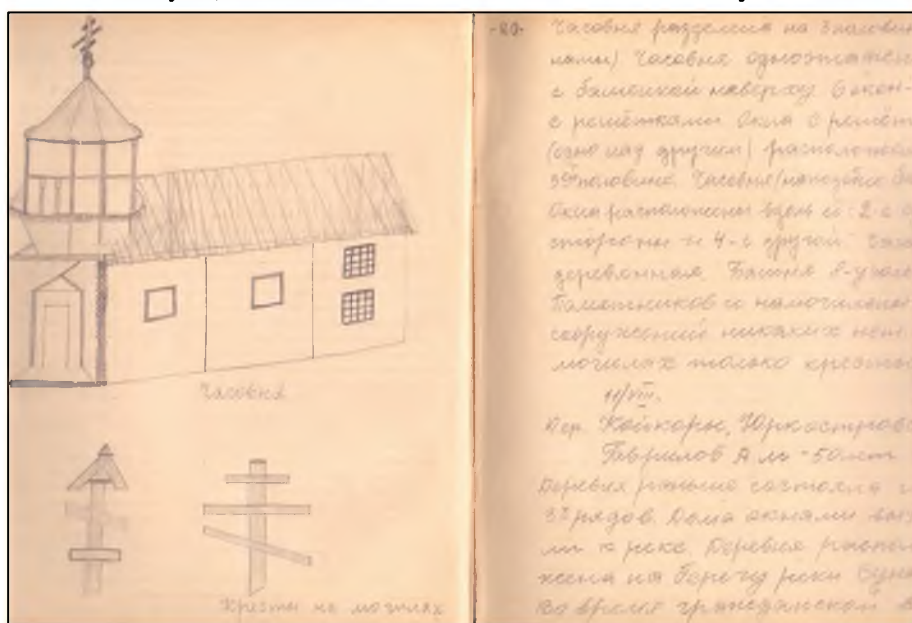 Часовня
Кресты на могилах
-20- Часовня разделена на 3 половин
Часовня одноэтажн
с башенкой наверху 6 окон-
с решётками Окна с решёт
(одно над другим) расположен
половине. Часовня
Окна расположены 2-с
стороны и 4-с другой
деревянная. Башня 8-уголь
Памятников и намогильн
сооружений никаких нет
могилах только кресты
11/VIII.
Дер. Койкоры, Юркостров
Гаврилов А 50 лет
Деревня раньше состояла и
3х рядов. Дома окнами вы
ли к реке. Деревня распол
жена на берегу реки Суна
Во время гражданской в